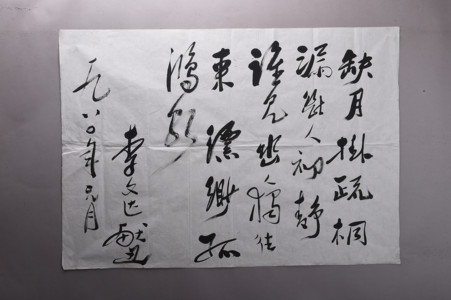 缺月掛疏桐
漏断人初静
谁见幽獨往
来 缥缈孤
鸿影
李文达
一九八〇年元月